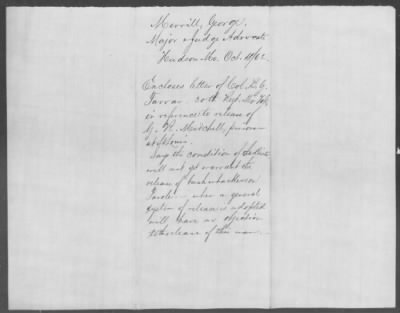 Merrill, George.
Major & Judge Advocate
Hudson Mo. Oct. 4/62.
Encloses letter of Col.
Farrar 30th Regt Mo Vols
in reference to release of
G. W. Mitchell, prisoner
at St Louis.
Says the condition of
will not yet warrant the
release of bushwhackers on
Parole. – when a general
system of release is adopted
will have no objection
to the release of this man.